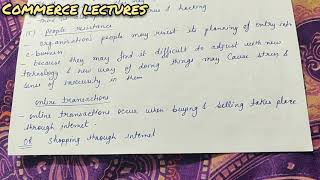 COMMERCE LECTURES
& hacking
(c) people resistance
- organisations people may resist its planning of entry into
e-business
- because they may find it difficult to adjust with new
technology & new way of doing things may cause stress &
sense of insecurity in them
online transactions
- online transactions occur when buying & selling takes place
through internet.
OR shopping through internet